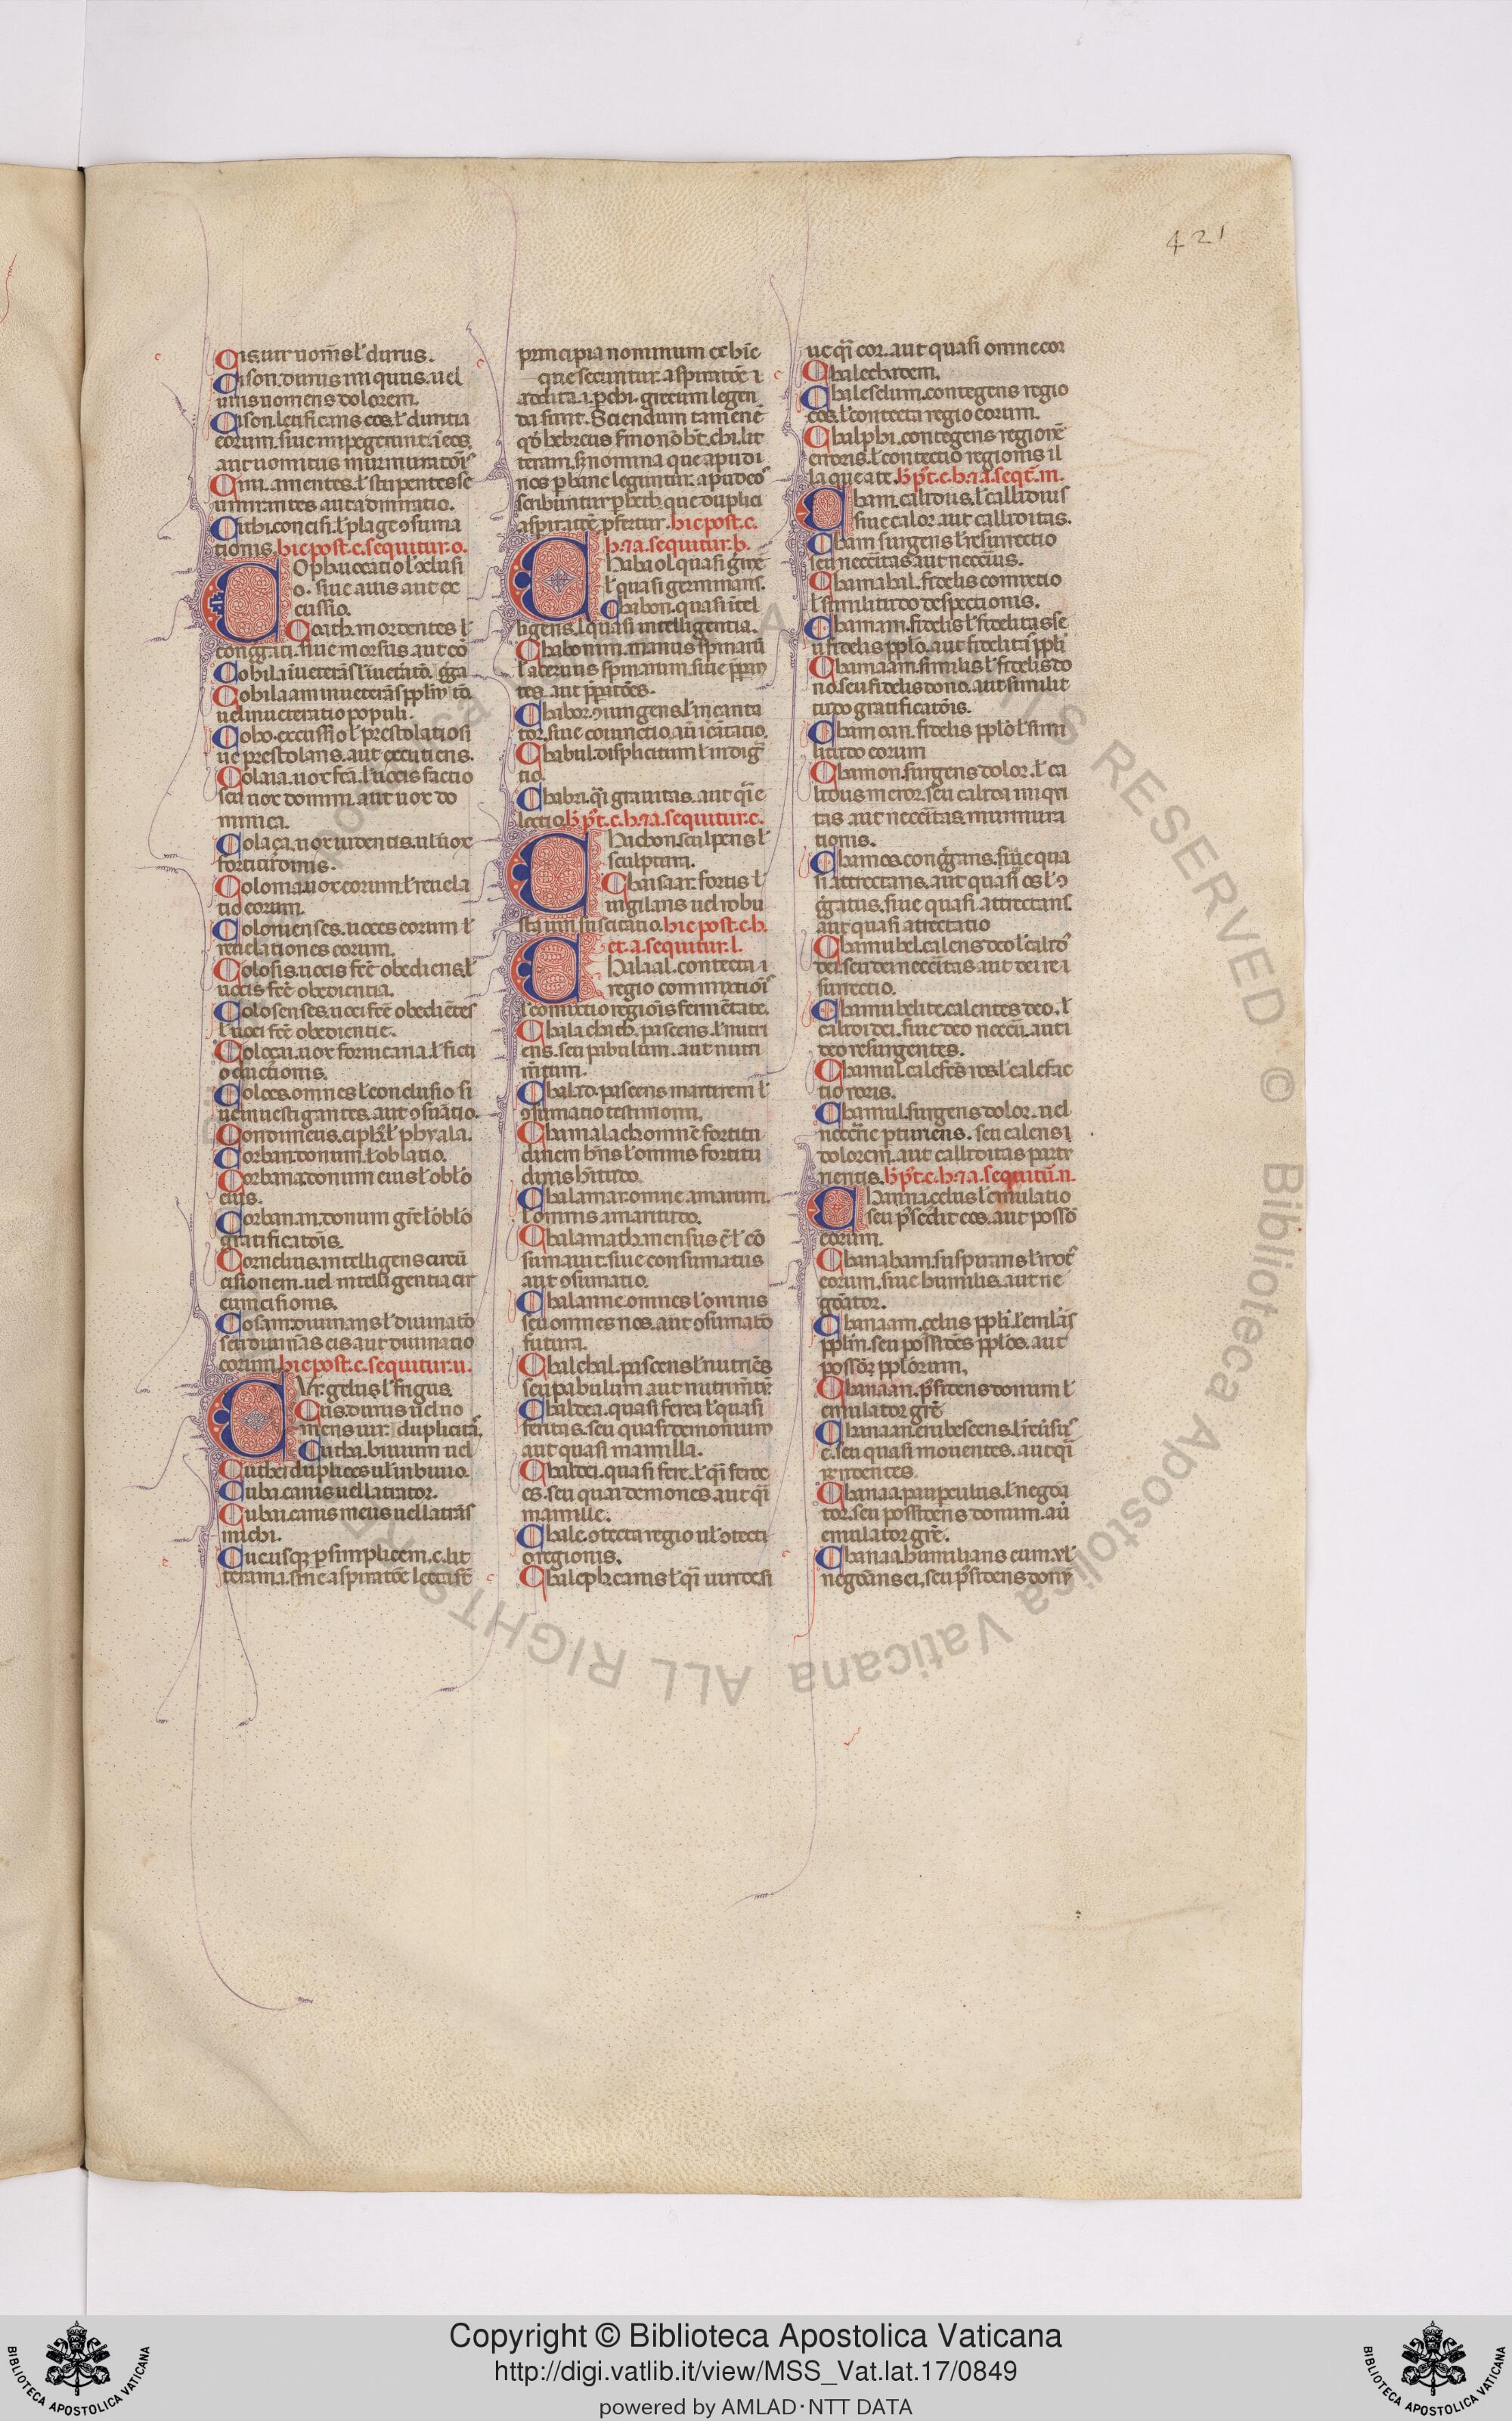 421
Cis. uir uomēs ł durus.
Cison. durus iniquus. uel
uirisuomens dolorem.
Cison. letificans eos. ł duritia
eorum. siue impegerunt. ī eos.
aut uomitus murmuratōis
Cini. amentes. ł stupentes se
u mirantes aut admiratio.
Cithi. concisi. ł plage ꝯsuma
tionis. hic post. c. sequitur. o.
Oph. uocatio ł ꝯclusi
o. siue auis aut ex
cussio.
Coath. mordentes ł
congrati. siue morsus. aut cō
Cobila. īueterās ł īuetatō.
Cobilaam inueterās ppłm
uel inueteratio populi.
Cobo. excussio ł prestolatio si
ue prestolans. aut excutiens.
Colaia. uox fcā. ł uocis factio
seu uox domini. aut uox do
minica.
Colaça. uox uidentis. uł uox
fortitudinis.
Colonia. uox eorum. ł reuela
tio eorum.
Colonienses. uoces eorum ł
reuelationes eorum.
Colosis. uocis fcē obediens. ł
uocis fcē obedientia.
Colosenses. uoci fcē obediētes
ł uoci fcē obedientie.
Coloçai. uox fornicaria. ł ficti
Coloes. omnes ł conclusio si
ue inuestigantes. aut ꝯsūatio.
Condimeus. ciph9. ł phyala.
Corban. donum. ł oblatio.
Corbana. donum eius ł obło
eius.
Corbanan. donum grē ł obło
gratificatōis.
Cornelius. intelligens circū
cisionem. uel intelligentia cir
cumcisionis.
Cosam. diuinans ł diuinatō
seu diuināns eis. aut diuinatio
eorum. hic post. c. sequitur. u.
Vr. gelus ł frigus.
Cus. durus uel uo
mens uir.
Cutha. biuium uel
Cuthei. duplices uł in biuio.
Cuba. canis uel latrator.
Cubai. canis meus uel latrās
michi.
Cucusqz p simplicem. c. lit
teram. i. sine aspiratōe
principia nominum ex hīc
que secuntur. aspiratōe
addita. i. p chi. grecum legen
da sunt. Sciendum tamen ē
qd hebreus sermo nō hēt. chi. lit
teram. sz nomina que apud
nos p hanc leguntur. apud eos
scribuntur p heth. que duplici
aspiratōe pfertur. hic post. c.
h. 7 a. sequitur. b.
Haba ol. quasi
ł quasi germinans.
Chabon. quasi ītel
ligens. ł quasi intelligentia.
Chabonim. manus spinarū
ł aceruus spinarum. siue
Chabor. ꝯiungens. ł incanta
tor. siue coiunctio. aū icātatio.
Chabul. displicitum ł indig
tio.
Chabri. qi grauitas. aut qi e
lectio. h post. c. h. 7 a. sequitur. c.
Hacbon. sculpens ł
sculptura.
Chaisaar. fortis ł
uigilans uel robu
sta um suscitatio. hic post. c. h.
et. a. sequitur. l.
Halaal. contecta
regio commixtiōis
ł comixtio regiōis fermētate.
Chalachath. pascens. ł nutri
ens. seu pabulum. aut nutri
mtum.
Chalad. pascens martirem ł
ꝯsumatio testimonii.
Chamalach. omnē fortitu
dinem hns. ł omnis fortitu
dinis
Chalamar. omne amarum.
ł omnis amaritudo.
Chalamach. mensus ē ł cō
sumauit. siue consumatus
aut ꝯsumatio.
Chalanne. omnes ł omnis
seu omnes nos. aut ꝯsumatō
futura.
Chalchal. pascens ł nutriēs
seu pabulum aut nutrimtū.
Chaldea. quasi ferea ł quasi
feritas. seu quasi demonium
aut quasi mamilla.
Chaldei. quasi fere. ł qi feroc
es. seu quai demones. aut qi
mamille.
Chale. ꝯtecta regio uł ꝯtecti
o regionis.
Chaleph. canis ł qi uir
ue qi cor. aut quasi omne cor
Chalech. idem.
Chaleselum. contegens regio
eos. ł contecta regio eorum.
Chalphi. contegens regionē
erroris. ł contectio regionis il
la que ait. h post. c. h. 7. a. seqt. m.
Cham. calidus. ł callidius
siue calor aut calliditas.
Cham surgens ł resurrectio
seu necēitas aut necēius.
Chamahal. fidelis comixtio
ł similitudo despectionis.
Chamam. fidelis ł fidelitas se
u fidelis ppło. aut fidelitas ppłi
Chamaam. similis ł fidelis do
no. seu fidelis dono. aut simili
tudo gratificatōis.
Chamoan. fidelis ppło ł simi
litudo eorum
Chamon. surgens dolor. ł ca
lidus meror. seu calida iniqui
tas aut necēitas murmura
tionis.
Chamos. congrans. siue qua
si attrectans. aut quasi os ł ꝯ
grgatus. siue quasi attrectans.
aut quasi atrectatio
Chamuhel. calens deo ł
dei. seu dei necēitas aut dei re
surrectio.
Chamuhelite. calentes deo. ł
calidi dei. siue deo
deo resurgentes.
Chamul. calefēs ros ł calefac
tio roris.
Chamul. surgens dolor. uel
pturiens. seu calens
dolorem. aut calliditas partu
rientis. h post. c. h. 7 a. sequitū n.
Hanna. celus ł emulatio
seu psedit eos. aut possō
eorum.
Chanaham. suspirans
eorum. siue humilis. aut ne
goātor.
Chanaam. celus ppłi. ł emłās
ppłm. seu possidēs ppłos. aut
possōr ppłorum.
Chanaan. psidens donum ł
emulator grē
Chanaan. erubescens.
e. seu quasi mouentes. aut qi
respōdentes.
Chanaa. pauperculus. ł negōa
tor. seu possidens donum. aū
emulator grē.
Chanaa. humilians eum. uł
negōans ei. seu psidens
BIBLIOTECA APOSTOLICA VATICANA
Copyright © Biblioteca Apostolica Vaticana
http://digi.vatlib.it/view/MSS_Vat.lat.17/0849
powered by AMLAD·NTT DATA
BIBLIOTECA APOSTOLICA VATICANA